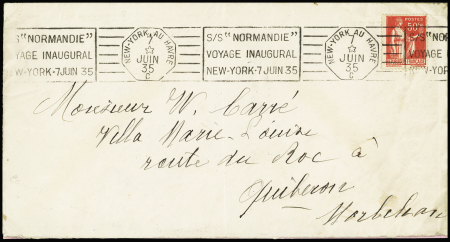 S "NORMANDIE"
VOYAGE INAUGURAL
EW-YORK-7 JUIN 35
NEW-YORK AU HAVRE
JUIN
35
C
S/S "NORMANDIE"
VOYAGE INAUGURAL
NEW-YORK-7 JUIN 35
NEW-YORK AU HAVRE
JUIN
35
C
POSTES
50c
Monsieur W. Carré
Villa Marie-Louise
route du Roc à
Quiberon
Morbihan